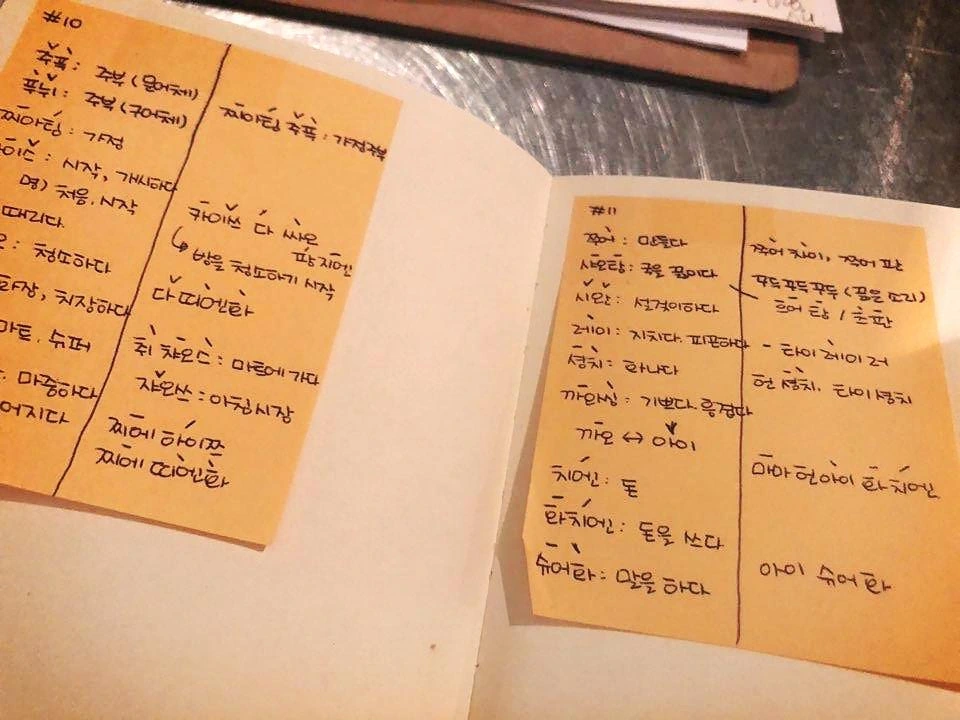 #10
주푸: 주부 (문어체)
푸뉘: 주부 (구어체)
찌아팅: 가정
카이스: 시작, 개시하다
명) 처음, 시작
때리다
: 청소하다
화장, 치장하다
마트. 슈퍼
마중하다
어지다
찌아팅 주푸: 가정주부
카이쓰 다 싸오
팡지엔
↳ 방을 청소하기 시작
다 띠엔화
취 챠오스: 마트에 가다
쟈오쓰: 아침시장
찌에 하이쯔
찌에 띠엔화
#11
쭈어: 만들다
샤오탕: 국을 끓이다
시완: 설겆이하다
레이: 지치다. 피곤하다
셩치: 화나다
까오씽: 기쁘다. 흥겹다
까오 ↔ 아이
치엔: 돈
화치엔: 돈을 쓰다
슈어화: 말을 하다
쭈어 차이, 쭈어 판
꾸두꾸두꾸두 (끓은 소리)
흐어 탕 / 츠판
- 타이 레이 러
헌 셩치. 타이셩치
마마 헌아이 화 치엔
아이 슈어화